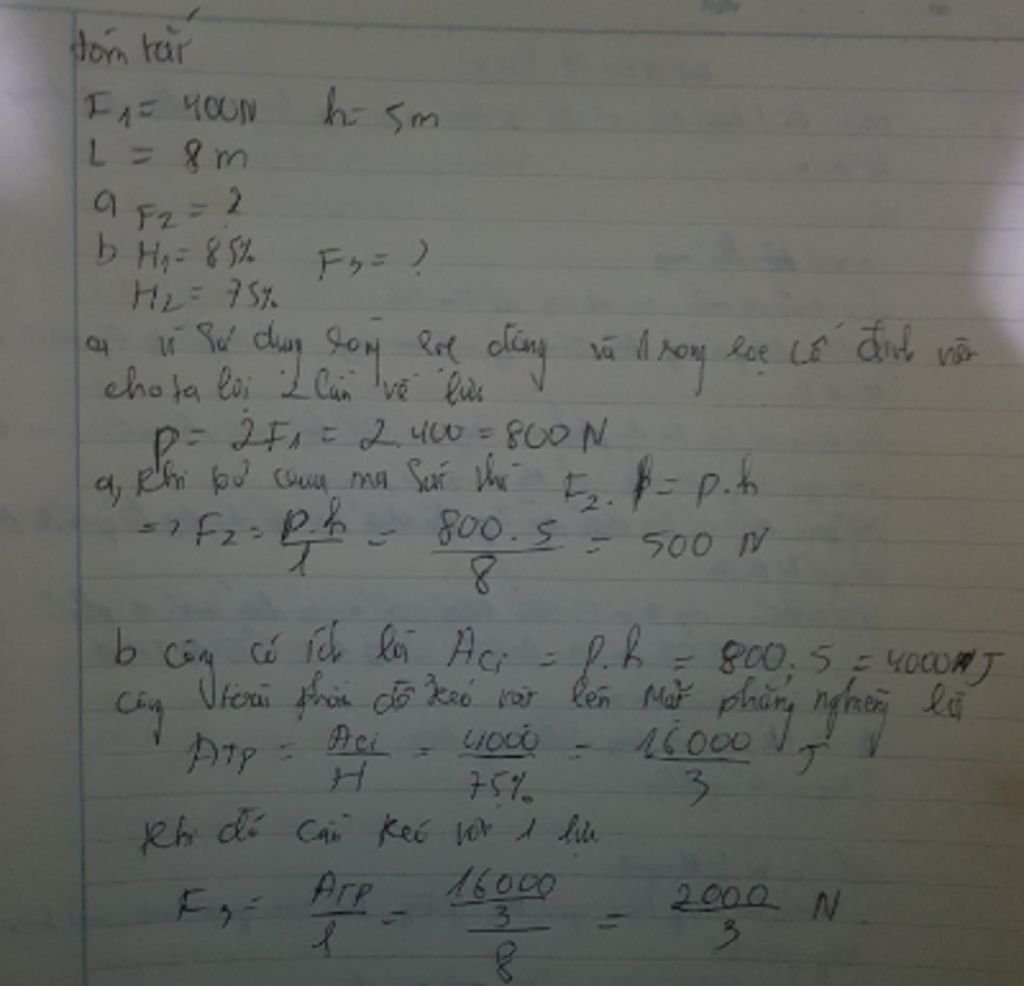 tóm tắt
F1 = 400N h = 5m
L = 8m
a F2 = ?
b H1 = 85% F3 = ?
H2 = 75%
a, vì sử dụng ròng rọc động và 1 ròng rọc cố định nên
cho ta lợi 2 lần về lực
P = 2F1 = 2.400 = 800 N
a, Khi bỏ qua ma sát thì F2.l = P.h
=> F2 = P.h/l = 800.5/8 = 500 N
b công có ích là Aci = P.h = 800.5 = 4000 J
công toàn phần để kéo vật lên mặt phẳng nghiêng là
ATP = Aci/H = 4000/75% = 16000/3 J
Khi đó cần kéo vật 1 lực
F3 = ATP/l = 16000/3/8 = 2000/3 N